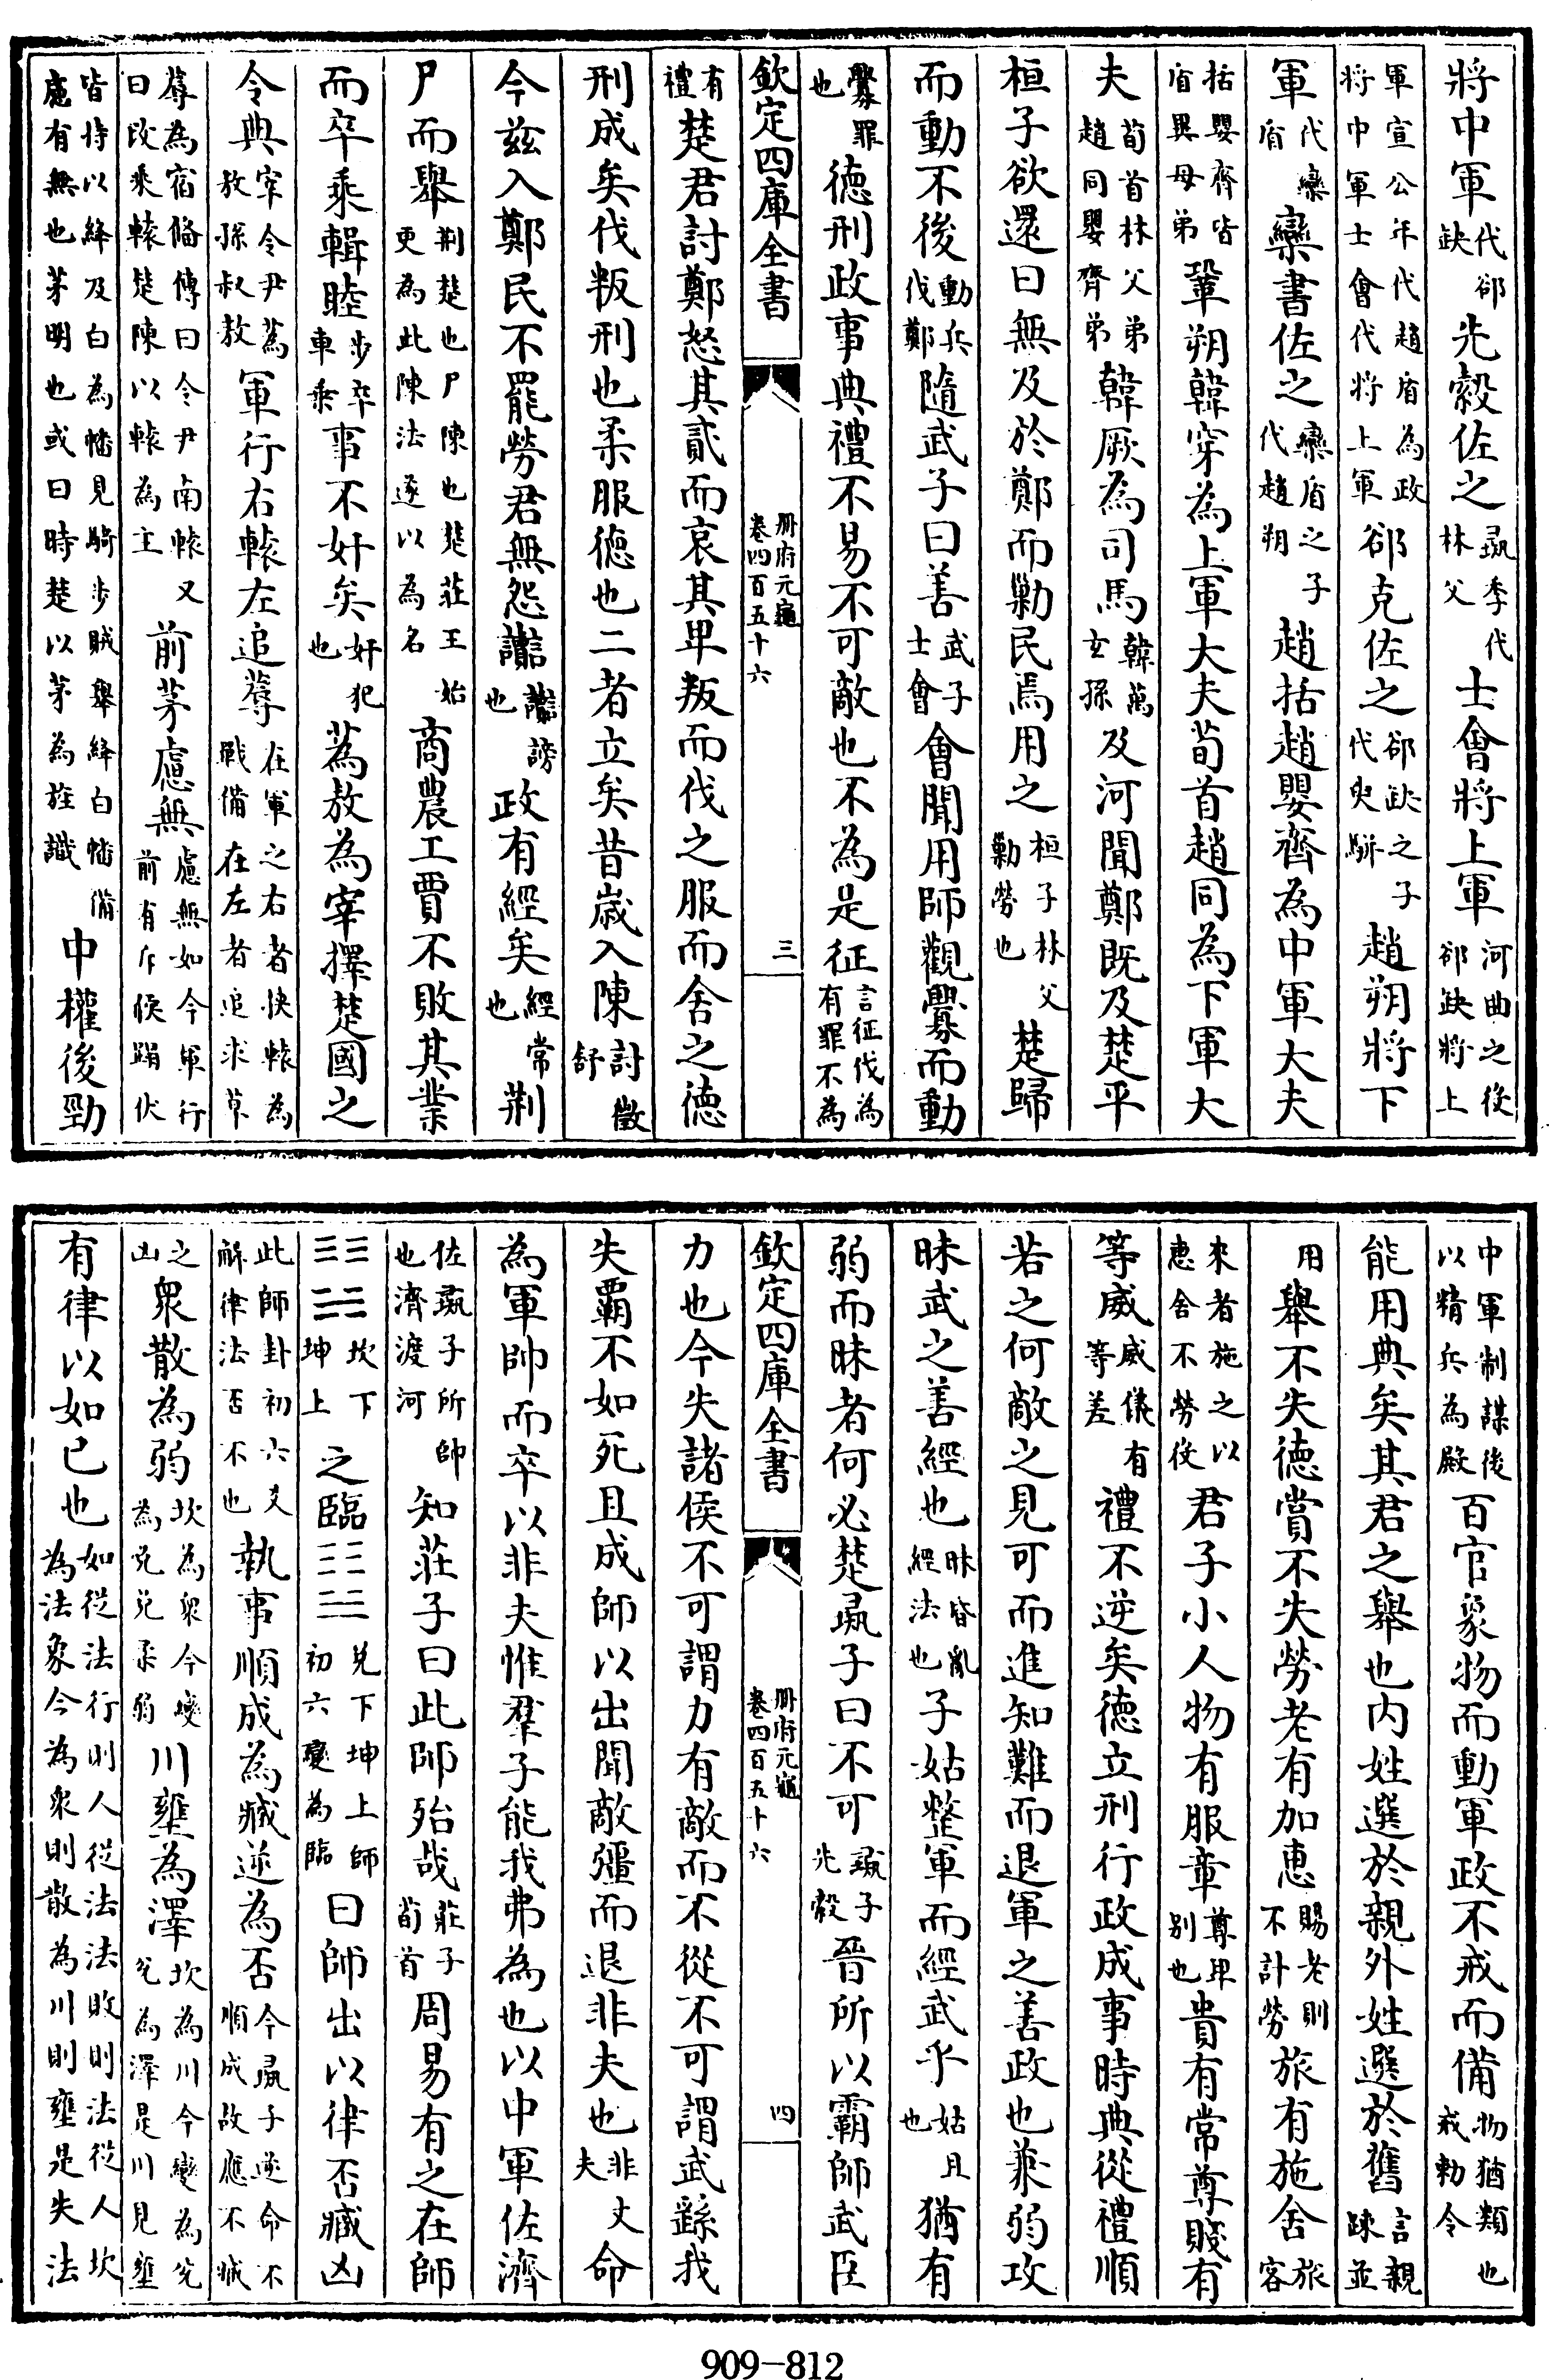 將中軍代郤缺先縠佐之彘季代林父士會將上軍河曲之役郤缺將上
軍宣公年代趙盾為政將中軍士會代將上軍郤克佐之郤缺之子代臾駢趙朔將下
軍代欒盾欒書佐之欒盾之子代趙朔趙括趙嬰齊為中軍大夫
括嬰齊皆盾異母弟鞏朔韓穿為上軍大夫荀首趙同為下軍大
夫荀首林父弟趙同嬰齊弟韓厥為司馬韓萬玄孫及河聞鄭既及楚平
桓子欲還曰無及於鄭而勦民焉用之桓子林父勦勞也楚歸
而動不後動兵伐鄭隨武子曰善武子士會會聞用師觀釁而動
釁罪也德刑政事典禮不易不可敵也不為是征言征伐為有罪不為
欽定四庫全書 冊府元龜卷四百五十六 三
有禮楚君討鄭怒其貳而哀其卑叛而伐之服而舍之德
刑成矣伐叛刑也柔服德也二者立矣昔歳入陳討徵舒
今兹入鄭民不罷勞君無怨讟讟謗也政有經矣經常也荆
尸而舉荆楚也尸陳也楚莊王始更為此陳法遂以為名商農工賈不敗其業
而卒乘輯睦步卒車乘事不奸矣奸犯也蒍敖為宰擇楚國之
令典宰令尹蒍敖孫叔敖軍行右轅左追蓐在軍之右者挾轅為戰備在左者追求草
蓐為宿備傳曰令尹南轅又曰改乘轅楚陳以轅為主前茅慮無慮無如今軍行前有斥候蹋伏
皆持以絳及白為幡見騎步賊舉絳白幡備慮有無也茅明也或曰時楚以茅為旌識中權後勁
中軍制謀後以精兵為殿百官象物而動軍政不戒而備物猶類也戒勅令
能用典矣其君之舉也内姓選於親外姓選於舊言親踈並
用舉不失德賞不失勞老有加惠賜老則不計勞旅有施舍旅客
來者施之以惠舍不勞役君子小人物有服章尊卑別也貴有常尊賤有
等威威儀有等差禮不逆矣德立刑行政成事時典從禮順
若之何敵之見可而進知難而退軍之善政也兼弱攻
昧武之善經也昧昏亂經法也子姑整軍而經武乎姑且也猶有
弱而昧者何必楚彘子曰不可彘子先縠晉所以霸師武臣
欽定四庫全書 冊府元龜卷四百五十六 四
力也今失諸侯不可謂力有敵而不從不可謂武繇我
失霸不如死且成師以出聞敵彊而退非夫也非丈夫命
為軍帥而卒以非夫惟羣子能我弗為也以中軍佐濟
佐彘子所帥也濟渡河知莊子曰此師殆哉莊子荀首周易有之在師
䷆坎下坤上之臨䷒兌下坤上師初六變為臨曰師出以律否臧凶
此師卦初六爻辭律法否不也執事順成為臧逆為否今彘子逆命不順成故應不臧
之凶衆散為弱坎為衆今變為兌兌柔弱川壅為澤坎為川今變為兌兌為澤是川見壅
有律以如已也如從法行則人從法法敗則法從人坎為法象今為衆則散為川則壅是失法
909-812